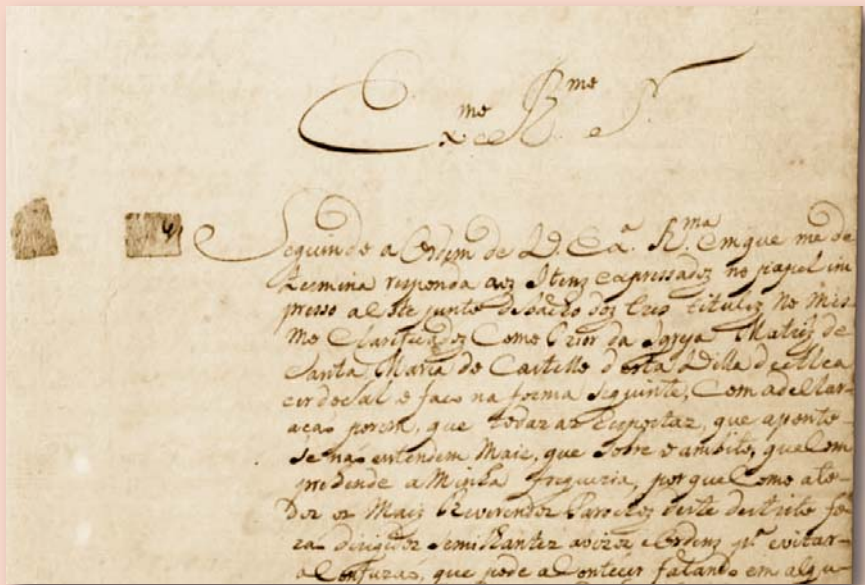 Ex.mo R.mo S.r
Seguindo a Ordem de V. Ex.a R.ma em que me de
termina responda aos Itens expressados no papel im
presso a este junto debacho dos tres titulos no mes
mo Clarificados Como Prior da Igreja Matriz de
Santa Maria do Castello desta Villa de Alca
cer do Sal o faço na forma seguinte, Com a declar
açaõ porem, que todas as Respostas, que aponto
se naõ entendem Mais, que sobre o ambito, que Com
prehende a Minha freguezia, porque Como a to
dos os Mais Reverendos Parochos deste destrito fo
raõ dirigidos semilhantes avizos, e Ordens p.a evitar
a Confuzaõ, que pode acontecer falando em algu